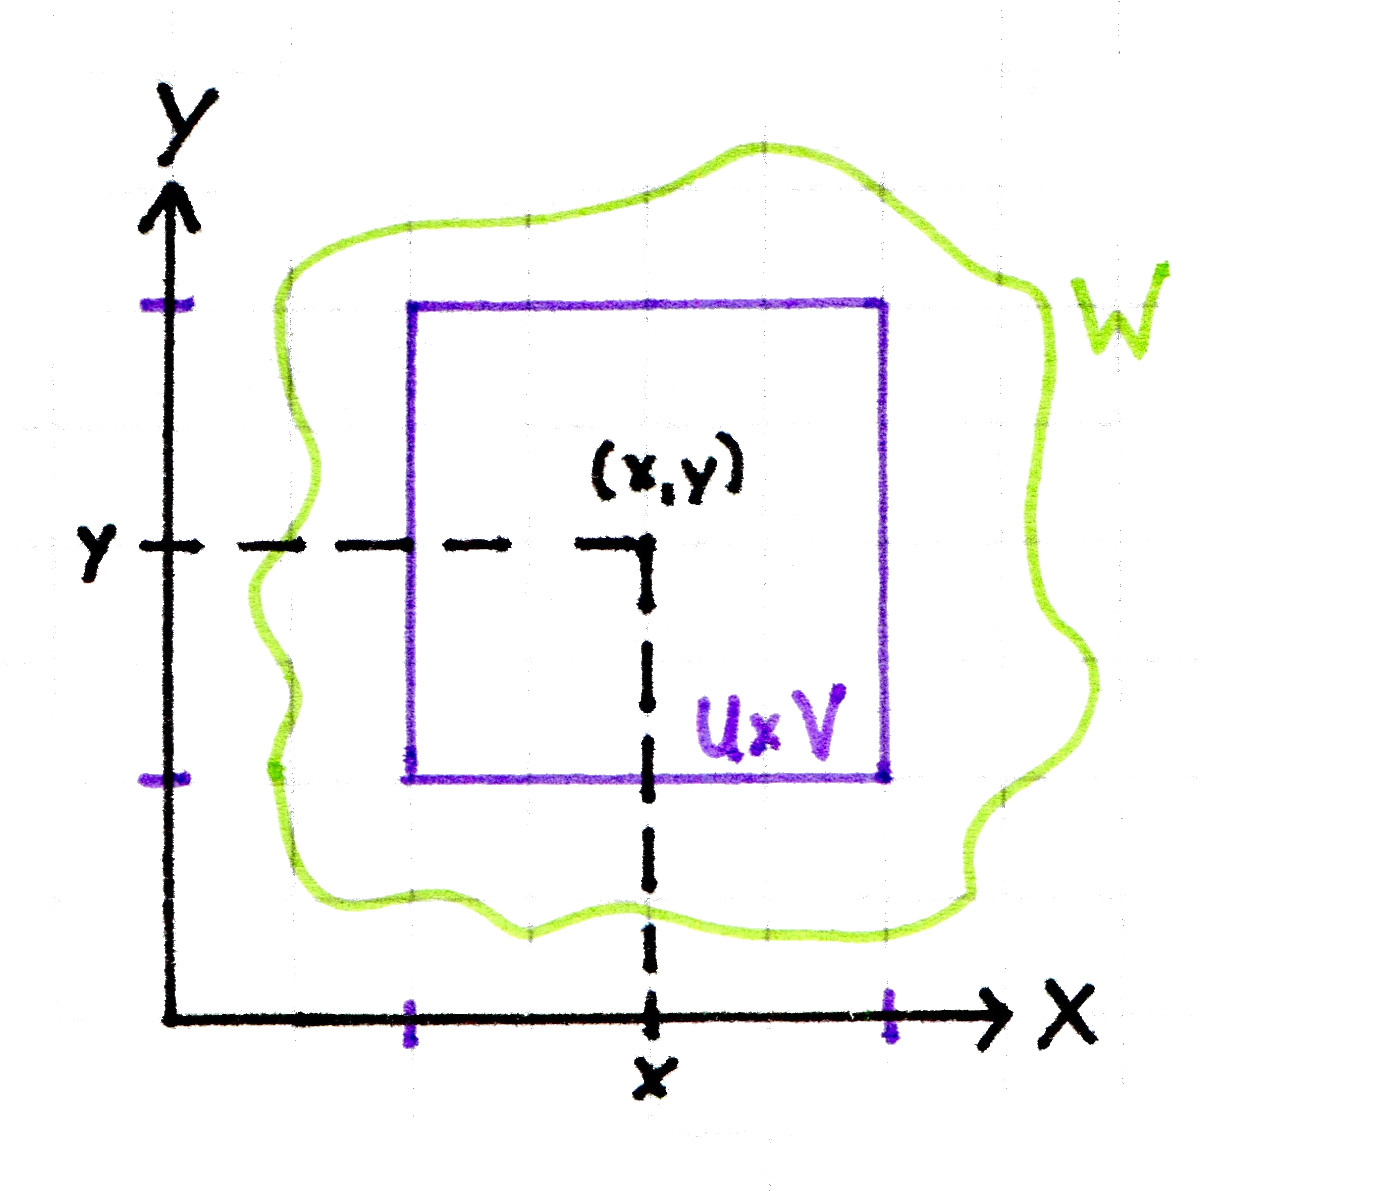 Y
W
(x,y)
y
U×V
X
x